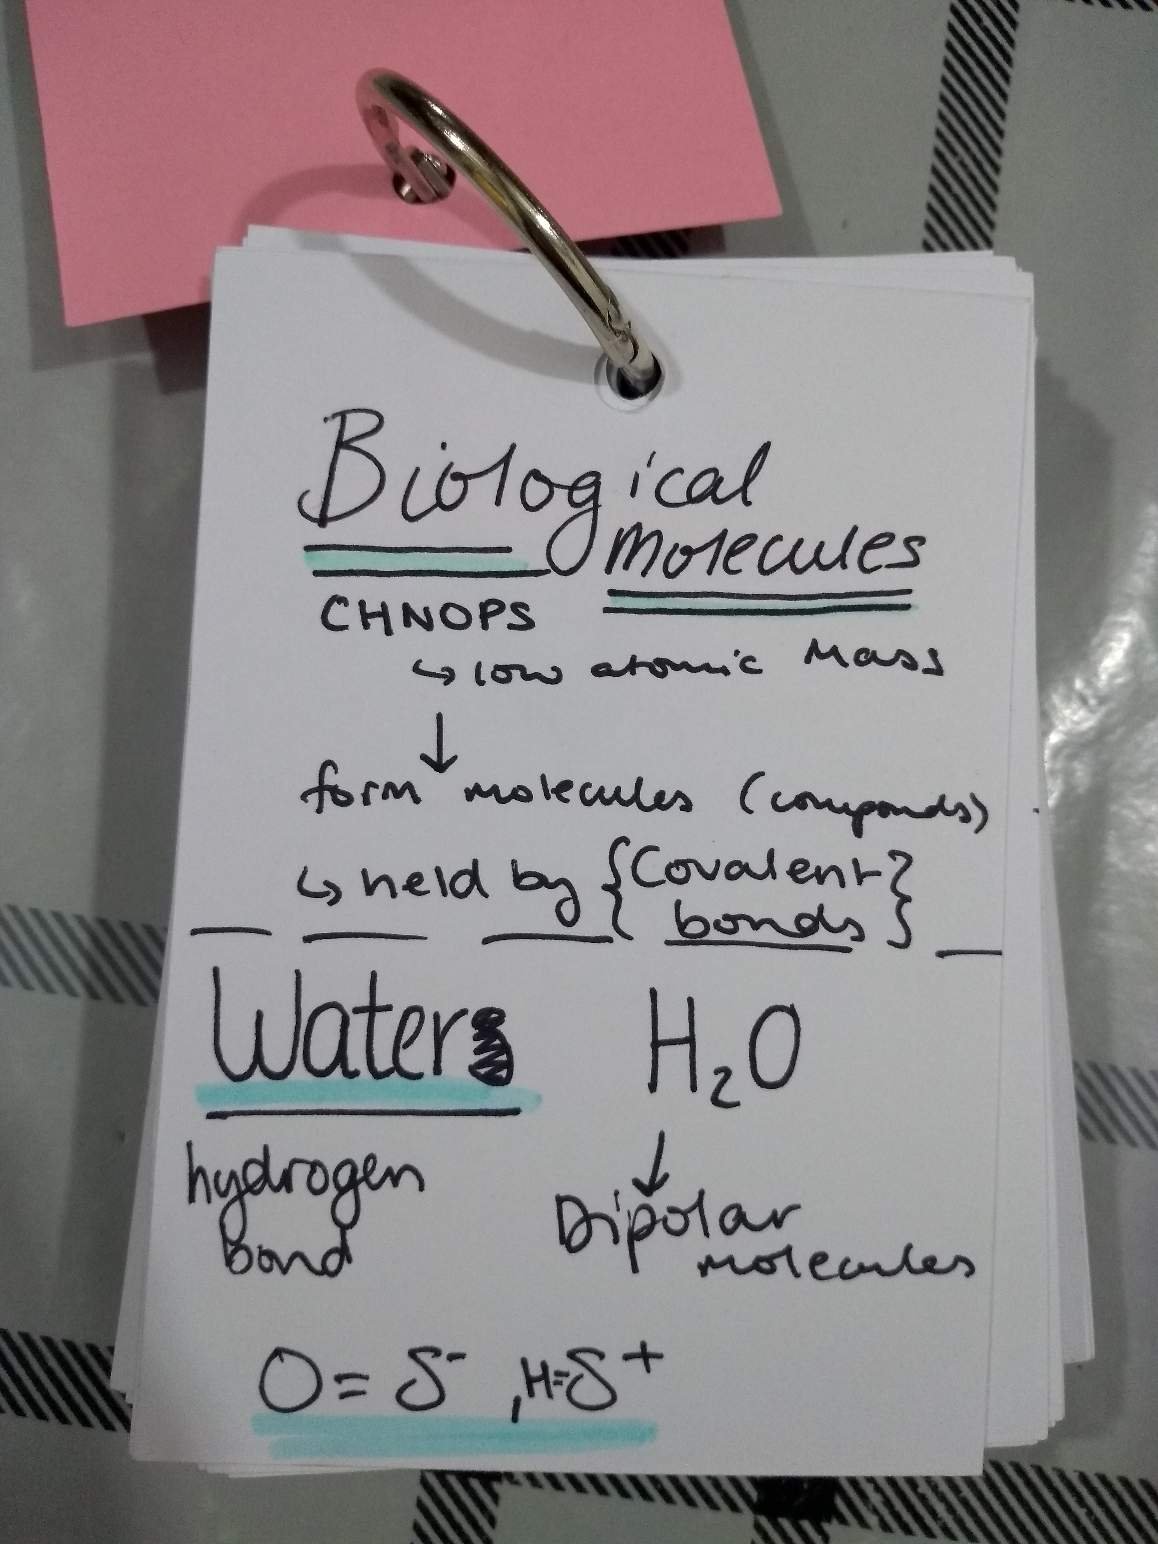 Biological
Molecules
CHNOPS
↳ low atomic Mass
↓
form molecules (compounds)
↳ held by {Covalent
bonds}
Water H₂O
↓
hydrogen
bond
Dipolar
molecules
O = δ⁻, H = δ⁺